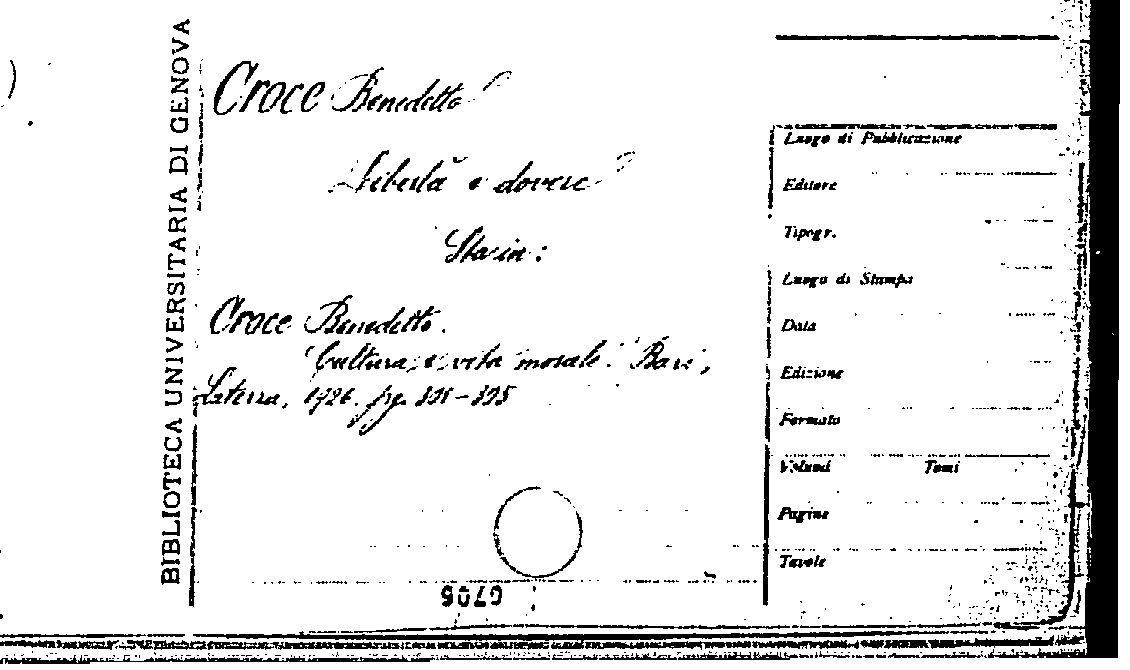 BIBLIOTECA UNIVERSITARIA DI GENOVA
Croce Benedetto
Libertà e dovere
Sta in:
Croce Benedetto.
Cultura e vita morale. Bari,
Laterza, 1926. pg.
Luogo di Pubblicazione
Editore
Tipogr.
Luogo di Stampa
Data
Edizione
Formato
Volumi Tomi
Pagine
Tavole